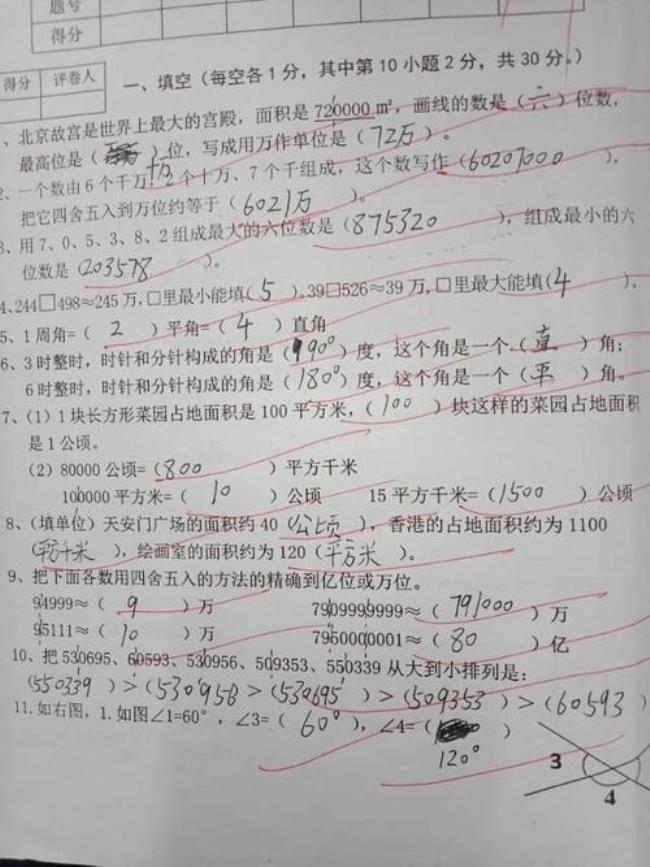 题号
得分
得分 评卷人
一、填空（每空各1分，其中第10小题2分，共30分。）
、北京故宫是世界上最大的宫殿，面积是720000㎡，画线的数是（六）位数，
最高位是（十万）位，写成用万作单位是（72万）。
2、一个数由6个千万、2个十万、7个千组成，这个数写作（60207000），
把它四舍五入到万位约等于（6021万）。
3、用7、0、5、3、8、2组成最大的六位数是（875320），组成最小的六
位数是（203578）。
4、244□498≈245万，□里最小能填（5）。39□526≈39万，□里最大能填（4）。
5、1周角=（2）平角=（4）直角
6、3时整时，时针和分针构成的角是（90°）度，这个角是一个（直）角；
6时整时，时针和分针构成的角是（180°）度，这个角是一个（平）角。
7、（1）1块长方形菜园占地面积是100平方米，（100）块这样的菜园占地面积
是1公顷。
（2）80000公顷=（800）平方千米
100000平方米=（10）公顷 15平方千米=（1500）公顷
8、（填单位）天安门广场的面积约40（公顷），香港的占地面积约为1100
（平方千米），绘画室的面积约为120（平方米）。
9、把下面各数用四舍五入的方法的精确到亿位或万位。
94999≈（9）万 7909999999≈（791000）万
95111≈（10）万 7950000001≈（80）亿
10、把530695、60593、530956、509353、550339从大到小排列是：
（550339）>（530956>（530695）>（509353）>（60593）
11.如右图，1.如图∠1=60°，∠3=（60°），∠4=（ ）
120°
3
4